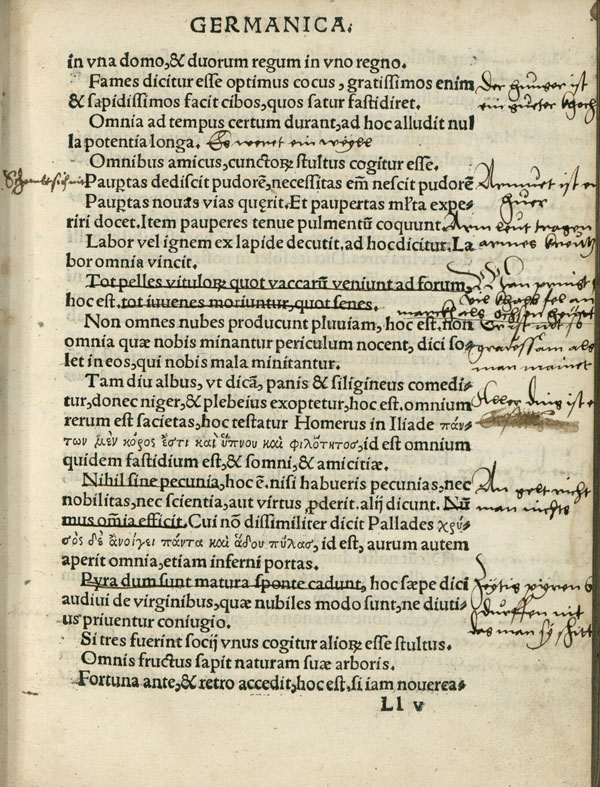 GERMANICA.
in vna domo, & duorum regum in vno regno.
Fames dicitur esse optimus cocus, gratissimos enim
& sapidissimos facit cibos, quos satur fastidiret.
Der hunger ist
ein gueter khoch
Omnia ad tempus certum durant, ad hoc alludit nul
la potentia longa. Es weret ein weyll
Omnibus amicus, cunctorꝝ stultus cogitur esse.
Pauꝑtas dedíscit pudorē, necessitas em̄ nescit pudorē
Armuet ist
Pauꝑtas nouas vias quęrit. Et paupertas ml'ta expe⸗
riri docet. Item pauperes tenue pulmentū coquunt.
Arm leut
Labor vel ignem ex lapide decutit. ad hoc dicitur. La
bor omnia vincit.
Tot pelles vitulorꝝ quot vaccarū veniunt ad forum,
hoc est. tot iuuenes moriuntur, quot senes.
Non omnes nubes producunt pluuiam, hoc est, non
omnia quæ nobis minantur periculum nocent, dici so⸗
let in eos, qui nobis mala minitantur.
als
man mainet
Tam diu albus, vt dicā, panis & siligineus comedi⸗
tur, donec niger, & plebeius exoptetur, hoc est. omnium
rerum est sacietas, hoc testatur Homerus in Iliade πάν⸗
των μὲν κόρος ἐστὶ καὶ ὕπνου καὶ φιλότητος, id est omnium
quidem fastidium est, & somni, & amicitiæ.
Aller ding ist
Nihil sine pecunia, hoc ē. nisi habueris pecunias, nec
nobilitas, nec scientia, aut virtus ꝓderit. alij dicunt. Nū
mus omīa efficit. Cui nō dissimiliter dicit Pallades χρύ⸗
σὸς δὲ ἀνοίγει πάντα καὶ ἅδου πύλας, id est, aurum autem
aperit omnia, etiam inferni portas.
An gelt richt
man nichts
Pyra dum sunt matura sponte cadunt, hoc sæpe dici
audiui de virginibus, quæ nubiles modo sunt, ne diuti⸗
us priuentur coniugio.
das man sy schitt
Si tres fuerint socij vnus cogitur aliorꝝ esse stultus.
Omnis fructus sapit naturam suæ arboris.
Fortuna ante, & retro accedit, hoc est, si iam nouerca⸗
Ll v